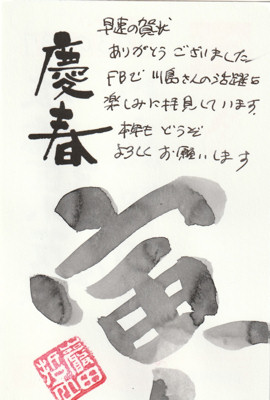 慶春
早速の賀状
ありがとうございました
FBで川島さんの活躍を
楽しみに拝見しています。
本年も どうぞ
よろしく お願いします
寅